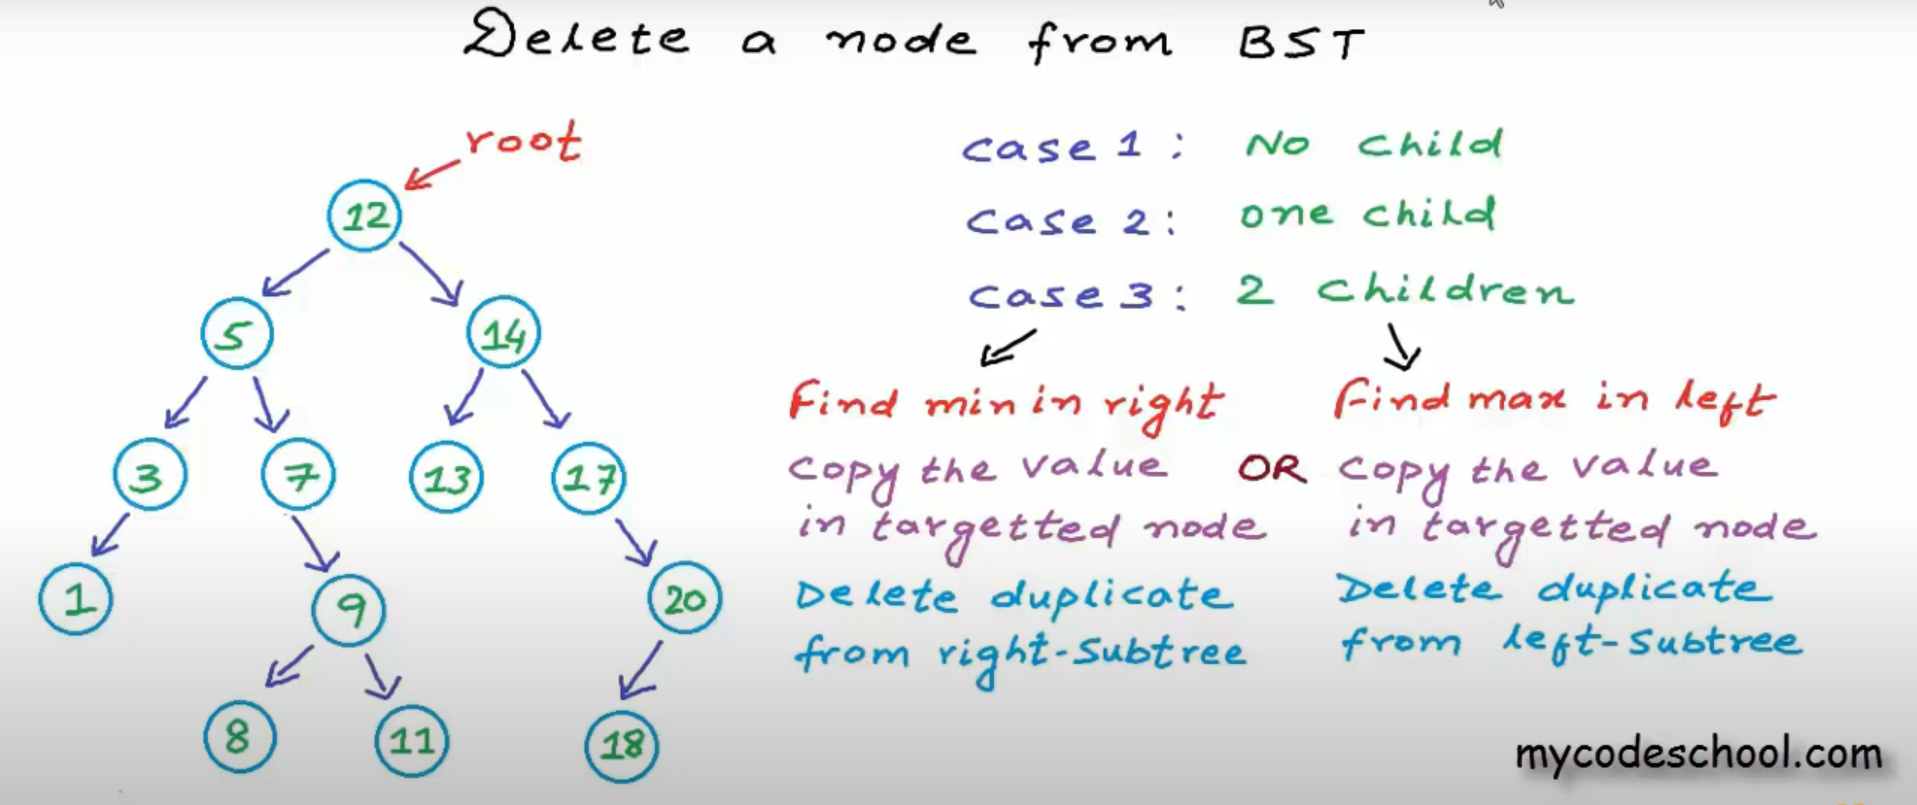 Delete a node from BST
root
12
5
14
3
7
13
17
1
9
20
8
11
18
case 1 : No child
case 2 : one child
case 3 : 2 children
Find min in right
copy the value
in targetted node
Delete duplicate
from right-subtree
OR
Find max in left
copy the value
in targetted node
Delete duplicate
from left-subtree
mycodeschool.com